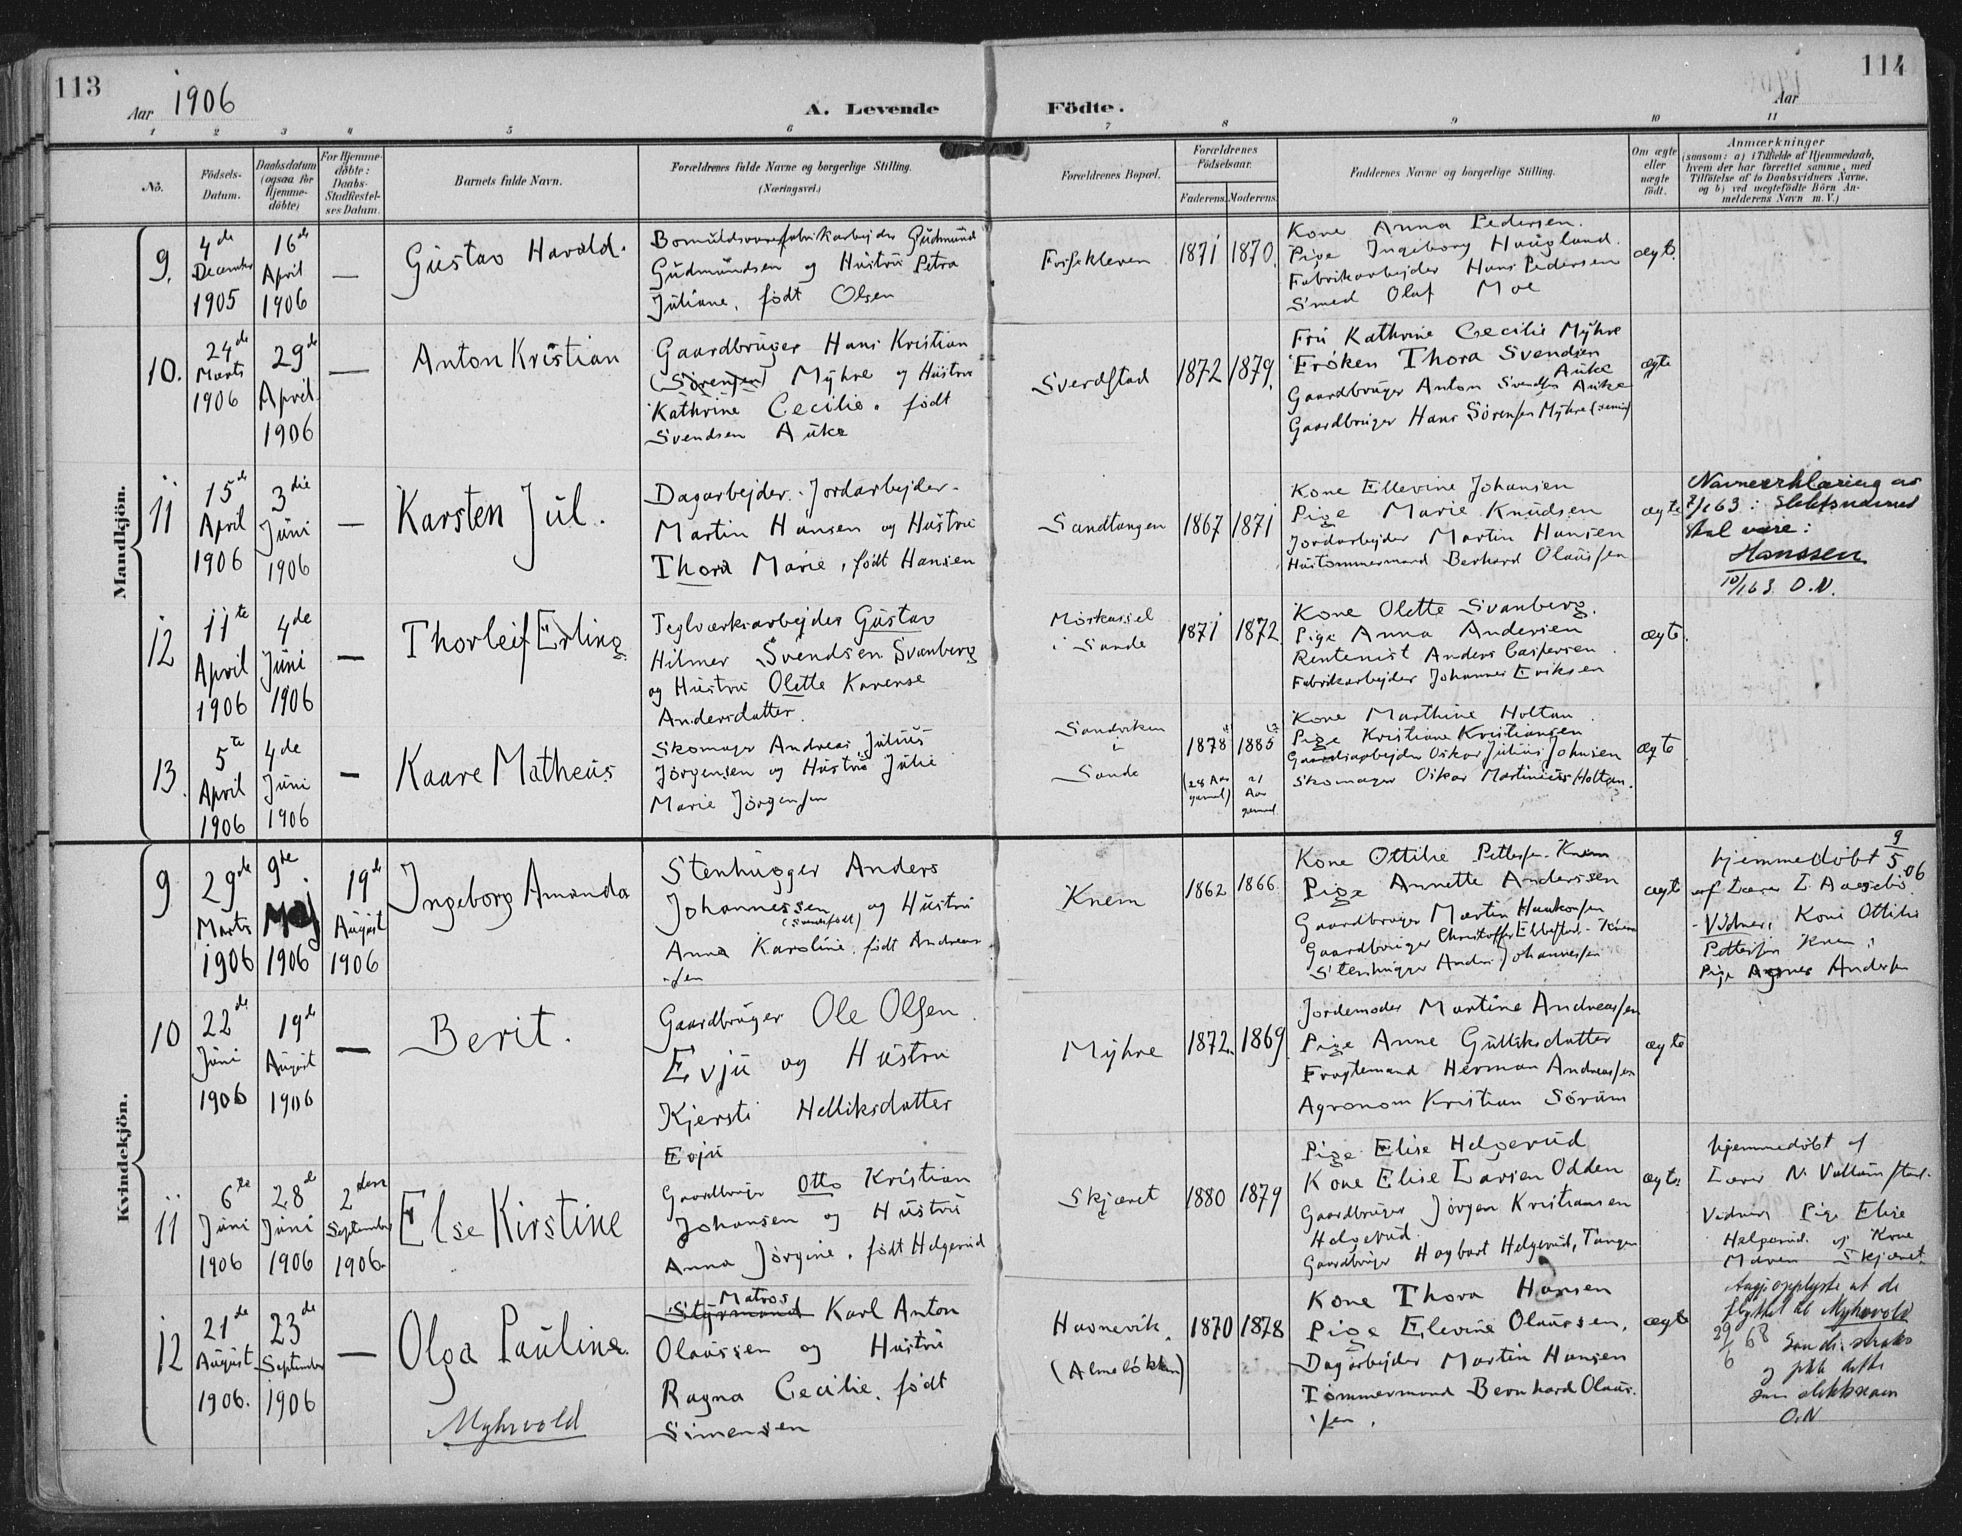 113
114
Aar 1906
A. Levende
Födte.
Aar
1 2 3 4 5 6 7 8 9 10 11
No.
Födsels-
Datum.
Daabsdatum
(ogsaa för
Hjemme-
döbte)
For Hjemme-
döbte:
Daabs-
Stadfæstel-
ses Datum.
Barnets fulde Navn.
Forældrenes fulde Navne og borgerlige Stilling.
(Næringsvei.)
Forældrenes Bopæl.
Forældrenes
Födselsaar.
Faderens. Moderens.
Faddernes Navne og borgerlige Stilling.
Om ægte
eller
uægte
födt.
Anmærkninger
(saasom: a) i Tilfælde af Hjemmedaab,
hvem der har forrettet samme, med
Tilföielse af to Daabsvidners Navne,
og b) ved uægtefödte Börn An-
melderens Navn m. V.)
Mandkjön.
9.
4de
December
1905
16de
April
1906
—
Gustav Harald.
Bomuldsvarefabrikarbejder Gudmund
Gudmundsen og Hustru Petra
Juliane, født Olsen
1871
1870
Kone Anna Pedersen.
Pige Ingeborg Haugland.
Fabrikarbejder Hans Pedersen
Smed Olaf Moe
ægte.
10.
24de
Marts
1906
29de
April
1906
—
Anton Kristian
Gaardbruger Hans Kristian
(Sørensen) Myhre og Hustru
Kathrine Cecilie, født
Svendsen Auke
Sverdstad
1872
1879.
Fru Kathrine Cecilie Myhre
Frøken Thora Svendsen
Auke
Gaardbruger Anton Svendsen Auke
Gaardbruger Hans Sørensen Myhre (senior)
ægte
11
15de
April
1906
3die
Juni
1906
—
Karsten Jul.
Dagarbejder-Jordarbejder-
Martin Hansen og Hustru
Thora Marie, født Hansen
Sandtangen
1867
1871
Kone Ellevine Johansen
Pige Marie Knudsen
Jordarbejder Martin Hansen
Hustømmermand Berhard Olaussen
ægte
Navneerklæring av
7/1 63: Slektsnavnet
skal være:
Hanssen
10/1 63 O.N.
12
11te
April
1906
4de
Juni
1906
—
Thorleif Erling
Teglværksarbejder Gustav
Hilmer Svendsen Svanberg
og Hustru Olette Karense
Andersdatter.
i Sande
1871
1872
Kone Olette Svanberg.
Pige Anna Andersen
Rentenist Anders Caspersen
Fabrikarbejder Johannes Eriksen
ægte.
13.
5te
April
1906
4de
Juni
1906
—
Kaare Matheus
Skomager Andreas Julius
Jørgensen og Hustru Julie
Marie Jørgensen
Sandviken
i
Sande
1878
(28 Aar
gammel)
1885
21
Aar
gammel
Kone Marthine Holtan.
Pige Kristiane Kristiansen
Gaardsarbejder Oskar Julius Johnsen
Skomager Oskar Martinius Holtan.
ægte
Kvindekjön.
9
29de
Marts
1906
9de.
Maj
1906
19de
August
1906
Ingeborg Amanda
Stenhugger Anders
Johannessen og Hustru
(Svenskfødt)
Anna Karoline, født Andreas-
sen
Knem
1862
1866.
Kone Ottilie Pettersen-Knem
Pige Annette Anderssen
Gaardbruger Martin Haakonsen
Gaardbruger Christoffer Ebbestad-Knem
Stenhugger Anders Johannessen
ægte
hjemmedøbt 9/5 06
af Lærer L Aagebö
Vidner: Kone Ottilie
Pettersen Knem,
Pige Agnes Andersen
10
22de
Juni
1906
19de
August
1906
—
Berit.
Gaardbruger Ole Olsen
Evju og Hustru
Kjersti Helliksdatter
Evju
Myhre
1872.
1869
Jordemoder Martine Andreassen
Pige Anne Gulliksdatter
Fragtemand Herman Andreassen
Agronom Kristian Sørum
ægte
11
6te
Juni
1906
28de
Juni
1906
2den
September
1906.
Else Kirstine
Gaardbruger Otto Kristian
Johansen og Hustru
Anna Jørgine, født Helgerud
Skjæret
1880
1879
Pige Elise Helgerud
Kone Elise Larsen Odden
Gaardbruger Jørgen Kristiansen
Helgerud.
Gaardbruger Hagbart Helgerud, Tangen
ægte.
hjemmedøbt af
Lærer N.
Vidner Pige Elise
Helgerud og Kone
Maren Skjæret.
12
21de
August
1906.
23de
September
1906
—
Olga Pauline.
Myhrvold
Matros
Styrmand Karl Anton
Olaussen og Hustru
Ragna Cecilie, født
Simensen
Havnevik.
(Almeløkken)
1870
1878
Kone Thora Hansen
Pige Elevine Olaussen,
Dagarbejder Martin Hansen
Tømmermand Bernhard Olaus-
sen.
ægte
Myhrvold
29/6 68
som slektsnavn
O.N